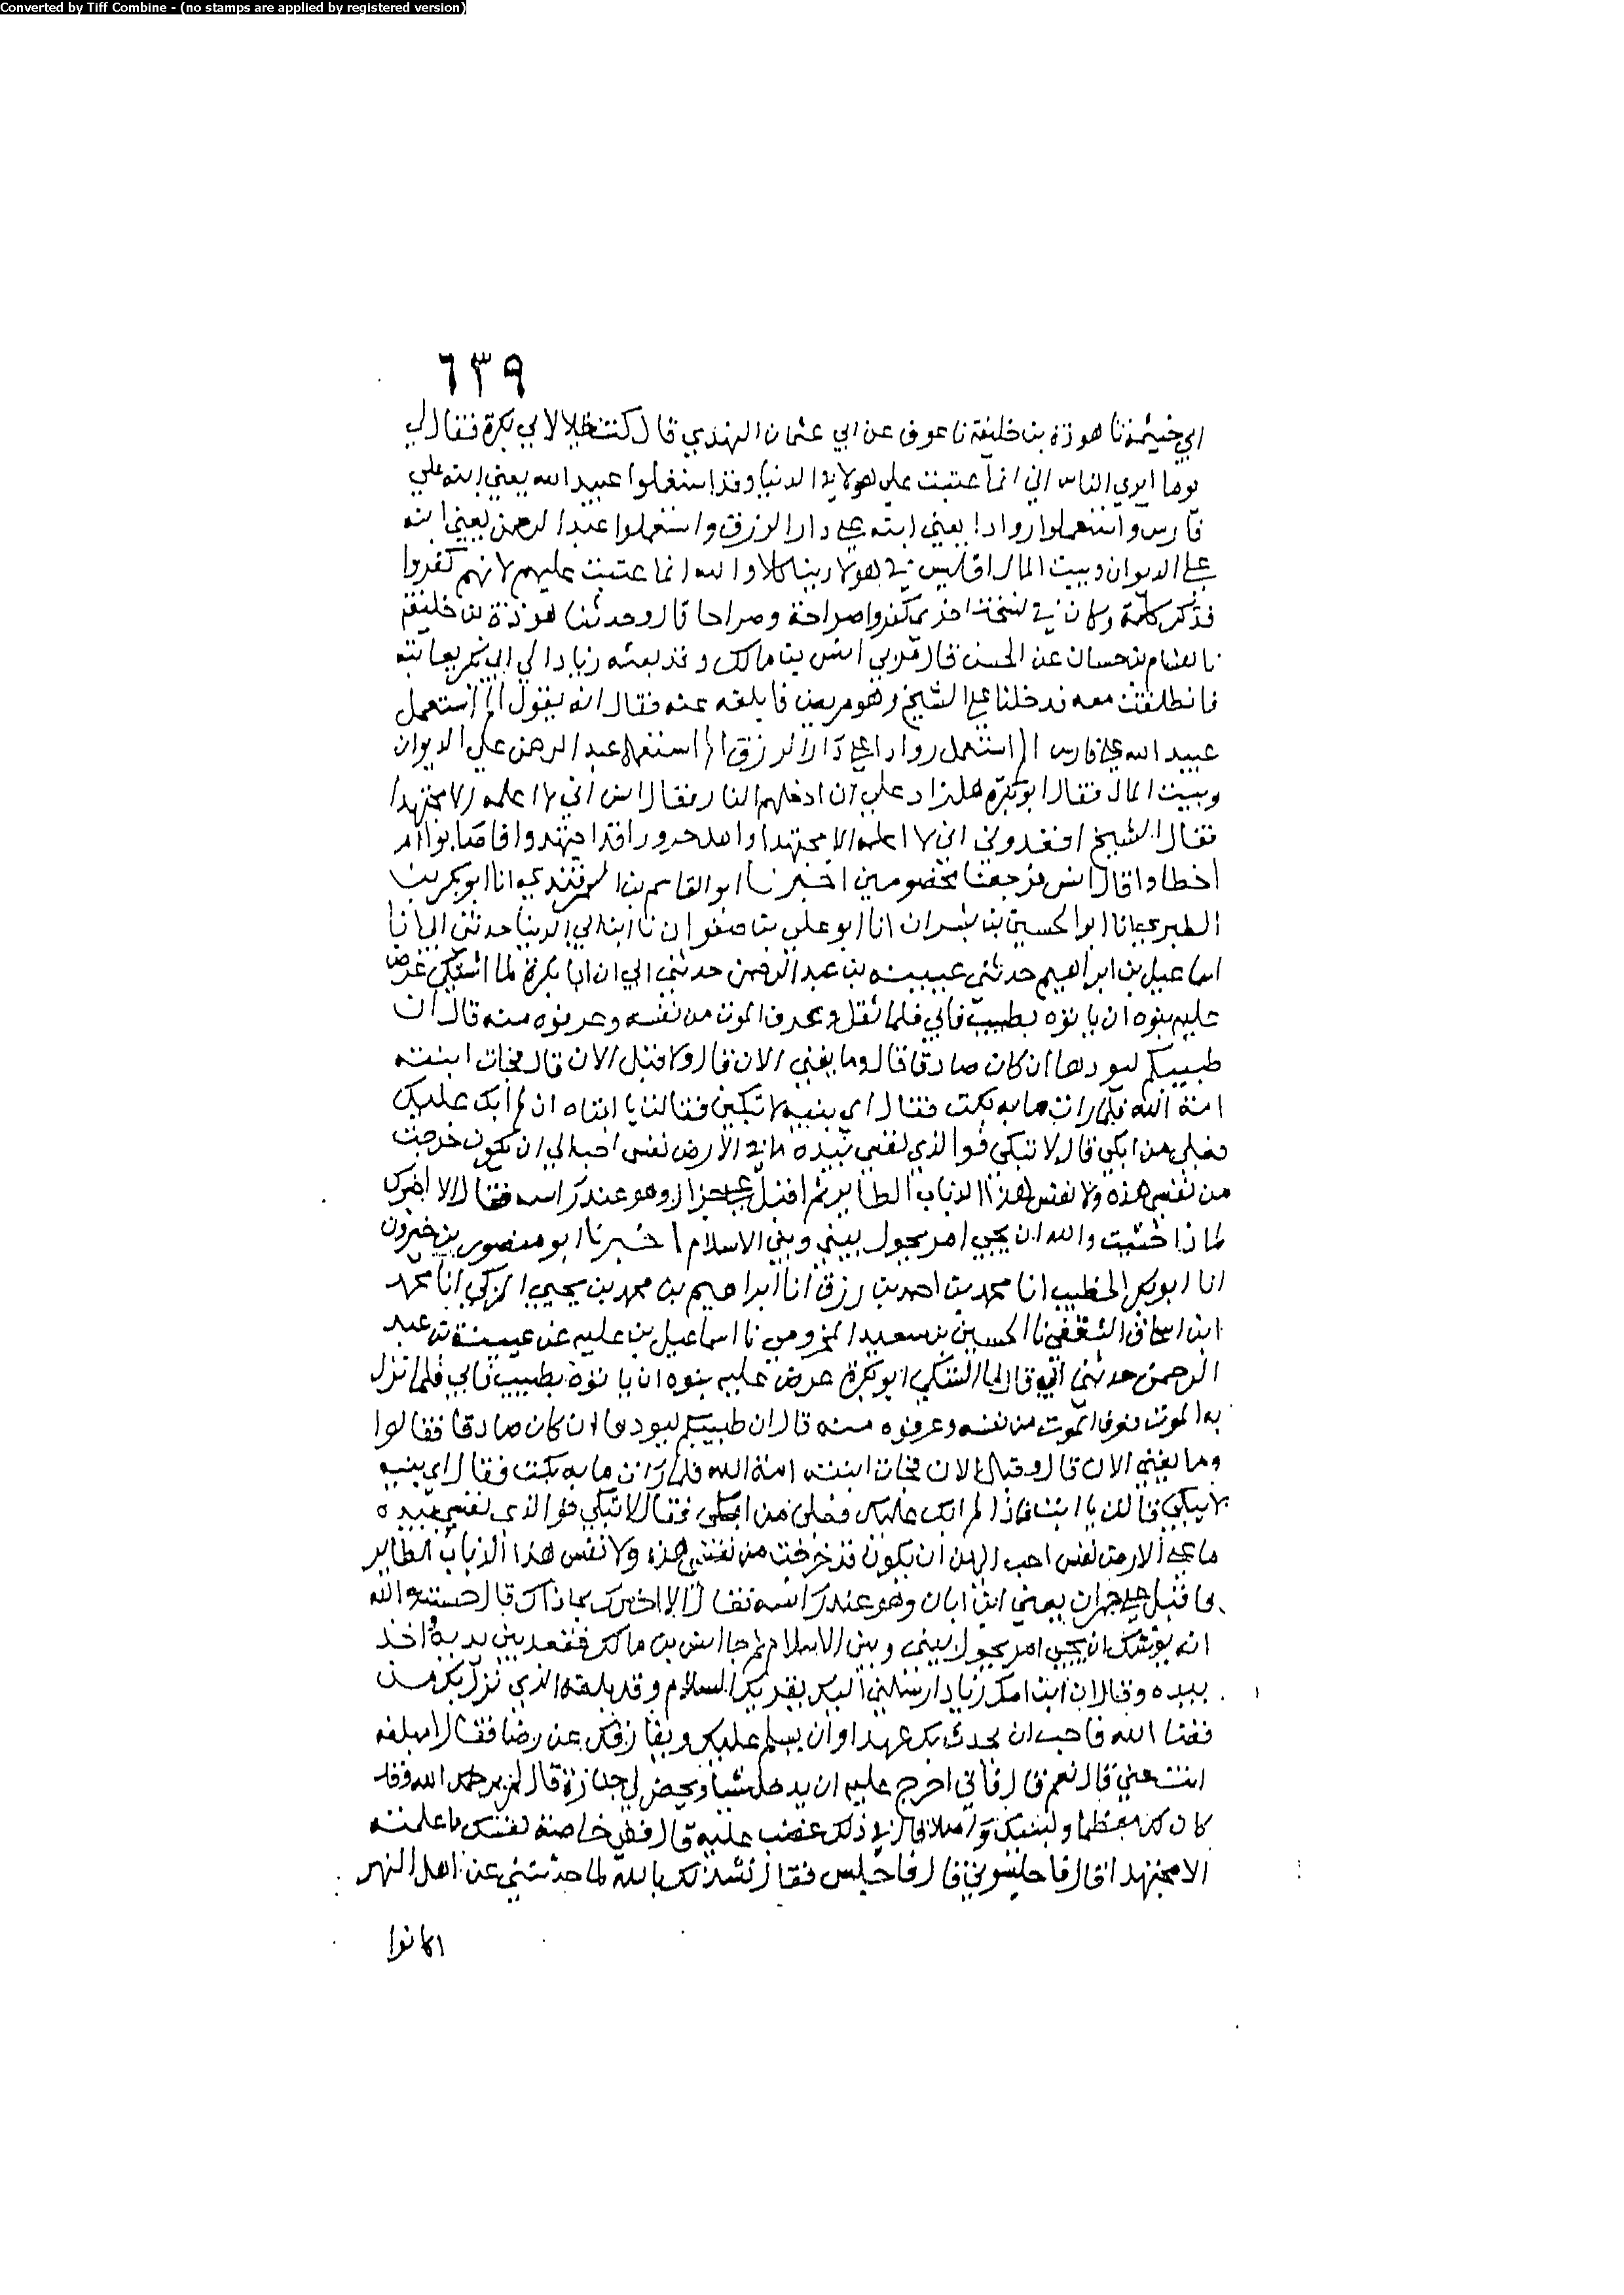 Converted by Tiff Combine - (no stamps are applied by registered version)
٦٣٩
ابي خيثمة نا هوذة بن خليفة نا عوف عن ابي عثمان النهدي قال كنت خليلا لابي بكرة فقال لي
يوما ايري الناس اني انما عتبت علي هولا في الدنيا وقد استعملوا عبيد الله يعني ابنه علي
فارس واستعملوا روادا يعني ابنه علي دار الرزق واستعملوا عبد الرحمن يعني ابنه
علي الديوان وبيت المال افليس في هولا دينا كلا والله انما عتبت عليهم لانهم كفروا
فذكر كلمة وكان في نسخة اخري كفروا صراحة وصراحا قال وحدثنا هوذة بن خليفة
نا هشام بن حسان عن الحسن قال مر بي انس بن مالك وقد بعثه زياد الي ابي بكرة يعاتبه
فانطلقت معه فدخلنا علي الشيخ وهو مريض فابلغه عنه فقال انه يقول الم استعمل
عبيد الله علي فارس الم استعمل روادا علي دار الرزق الم استعمل عبد الرحمن علي الديوان
وبيت المال فقال ابو بكرة هل زاد علي ان ادخلهم النار فقال انس اني لا اعلمه الا مجتهدا
فقال الشيخ اقعدوني اني لا اعلمه الا مجتهدا واهل حرورا قد اجتهدوا فاصابوا ام
اخطاوا قال انس فرجعنا مخصومين اخبرنا ابو القاسم بن السمرقندي انا ابو بكر بن
الطبري انا ابو الحسين بن بشران انا ابو علي بن صفوان نا ابن ابي الدنيا حدثني ابي انا
اسماعيل بن ابراهيم حدثني عيينة بن عبد الرحمن حدثني ابي ان ابا بكرة لما اشتكي عرض
عليه بنوه ان ياتوه بطبيب فابي فلما ثقل وعرف الموت من نفسه وعرفوه منه قال اين
طبيبكم ليردها ان كان صادقا قال وما يغني الان قال ولا قبل الان قال فجات ابنته
امة الله فلما رات ما به بكت فقال اي بنية لا تبكين فقالت يا ابتاه ان لم ابك عليك
فعلي من ابكي قال لا تبكي فوالذي نفسي بيده ما في الارض نفس احب الي ان تكون خرجت
من نفسي هذه ولا نفس هذا الذباب الطاير ثم اقبل علي حمران وهو عند راسه فقال الا اخبرك
لماذا خشيت والله ان يجي امر يحول بيني وبين الاسلام اخبرنا ابو منصور بن خيرون
انا ابو بكر الخطيب انا محمد بن احمد بن رزق انا ابراهيم بن محمد بن يحيي المزكي انا محمد
ابن اسحاق الثقفي نا الحسين بن سعيد المخزومي نا اسماعيل بن علية عن عيينة بن عبد
الرحمن حدثني ابي قال لما اشتكي ابو بكرة عرض عليه بنوه ان ياتوه بطبيب فابي فلما نزل
به الموت فعرف الموت من نفسه وعرفوه منه قال اين طبيبكم ليردها ان كان صادقا فقالوا
وما يغني الان قال وقبل الان فجات ابنته امة الله فلما رات ما به بكت فقال اي بنية
لا تبكي قالت يا ابت فاذا لم ابك عليك فعلي من ابكي فقال لا تبكي فوالذي نفسي بيده
ما علي الارض نفس احب الي من ان يكون قد خرجت من نفسي هذه ولا نفس هذا الذباب الطاير
فاقبل علي حمران يعني ابن ابان وهو عند راسه فقال الا اخبرك بما ذاك قال خشيت والله
انه يوشك ان يجي امر يحول بيني وبين الاسلام ثم جا انس بن مالك فقعد بين يديه واخذ
بيده وقال ان ابن امك زياد ارسلني اليك يقريك السلام وقد بلغه الذي نزل بك من
قضا الله فاحب ان يحدث بك عهدا وان يسلم عليك ويفارقك عن رضا فقال امبلغه
انت عني قال نعم قال فاني احرج عليه ان يدخل لي بيتا ويحضر لي جنازة قال لم يرحمك الله وقد
كان لك معظما ولبنيك واصلا قال في ذلك غضبت عليه قال ففي خاصة نفسك ما علمته
الا مجتهدا قال فاجلسوني قال فاجلس فقال نشدتك بالله لما حدثتني عن اهل النهر
اكانوا